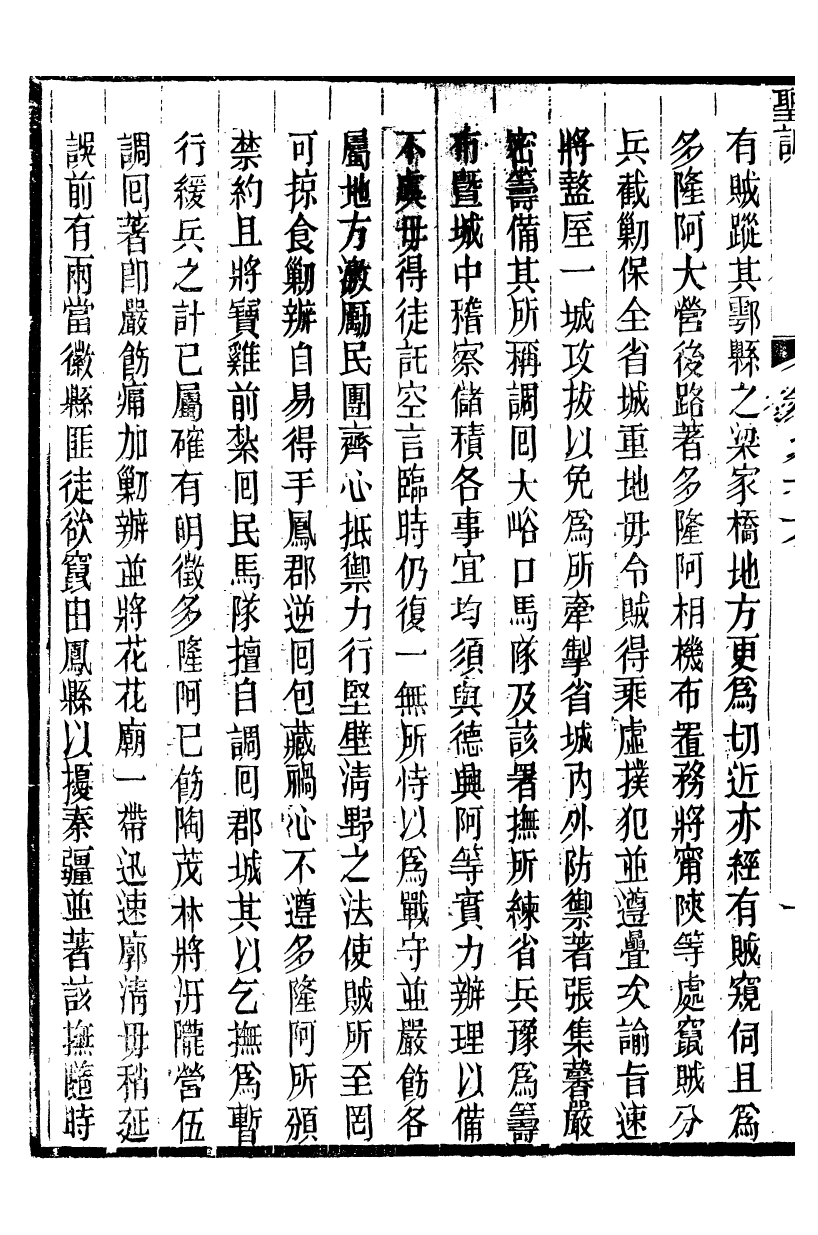 聖訓
有賊蹤其鄠縣之梁家橋地方更為切近亦經有賊窺伺且為
多隆阿大營後路著多隆阿相機布置務將甯陝等處竄賊分
兵截勦保全省城重地毋令賊得乘虛撲犯並遵疊次諭旨速
將盩厔一城攻拔以免為所牽掣省城內外防禦著張集馨嚴
密籌備其所稱調回大峪口馬隊及該署撫所練省兵豫為籌
布暨城中稽察儲積各事宜均須與德興阿等實力辦理以備
不虞毋得徒託空言臨時仍復一無所恃以為戰守並嚴飭各
屬地方激勵民團齊心抵禦力行堅壁清野之法使賊所至罔
可掠食勦辦自易得手鳳郡逆回包藏禍心不遵多隆阿所頒
禁約且將寶雞前紮回民馬隊擅自調回郡城其以乞撫為暫
行緩兵之計已屬確有明徵多隆阿已飭陶茂林將汧隴營伍
調回著即嚴飭痛加勦辦並將花花廟一帶迅速廓清毋稍延
誤前有兩當徽縣匪徒欲竄由鳳縣以擾秦疆並著該撫隨時